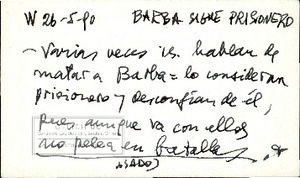 W 26-5-90 BARBA SIGUE PRISIONERO
- Varias veces is. hablan de
matar a Barba = lo consideran
prisionero y desconfían de él,
pues aunque va con ellos
no pelea en batallas. *
USADO